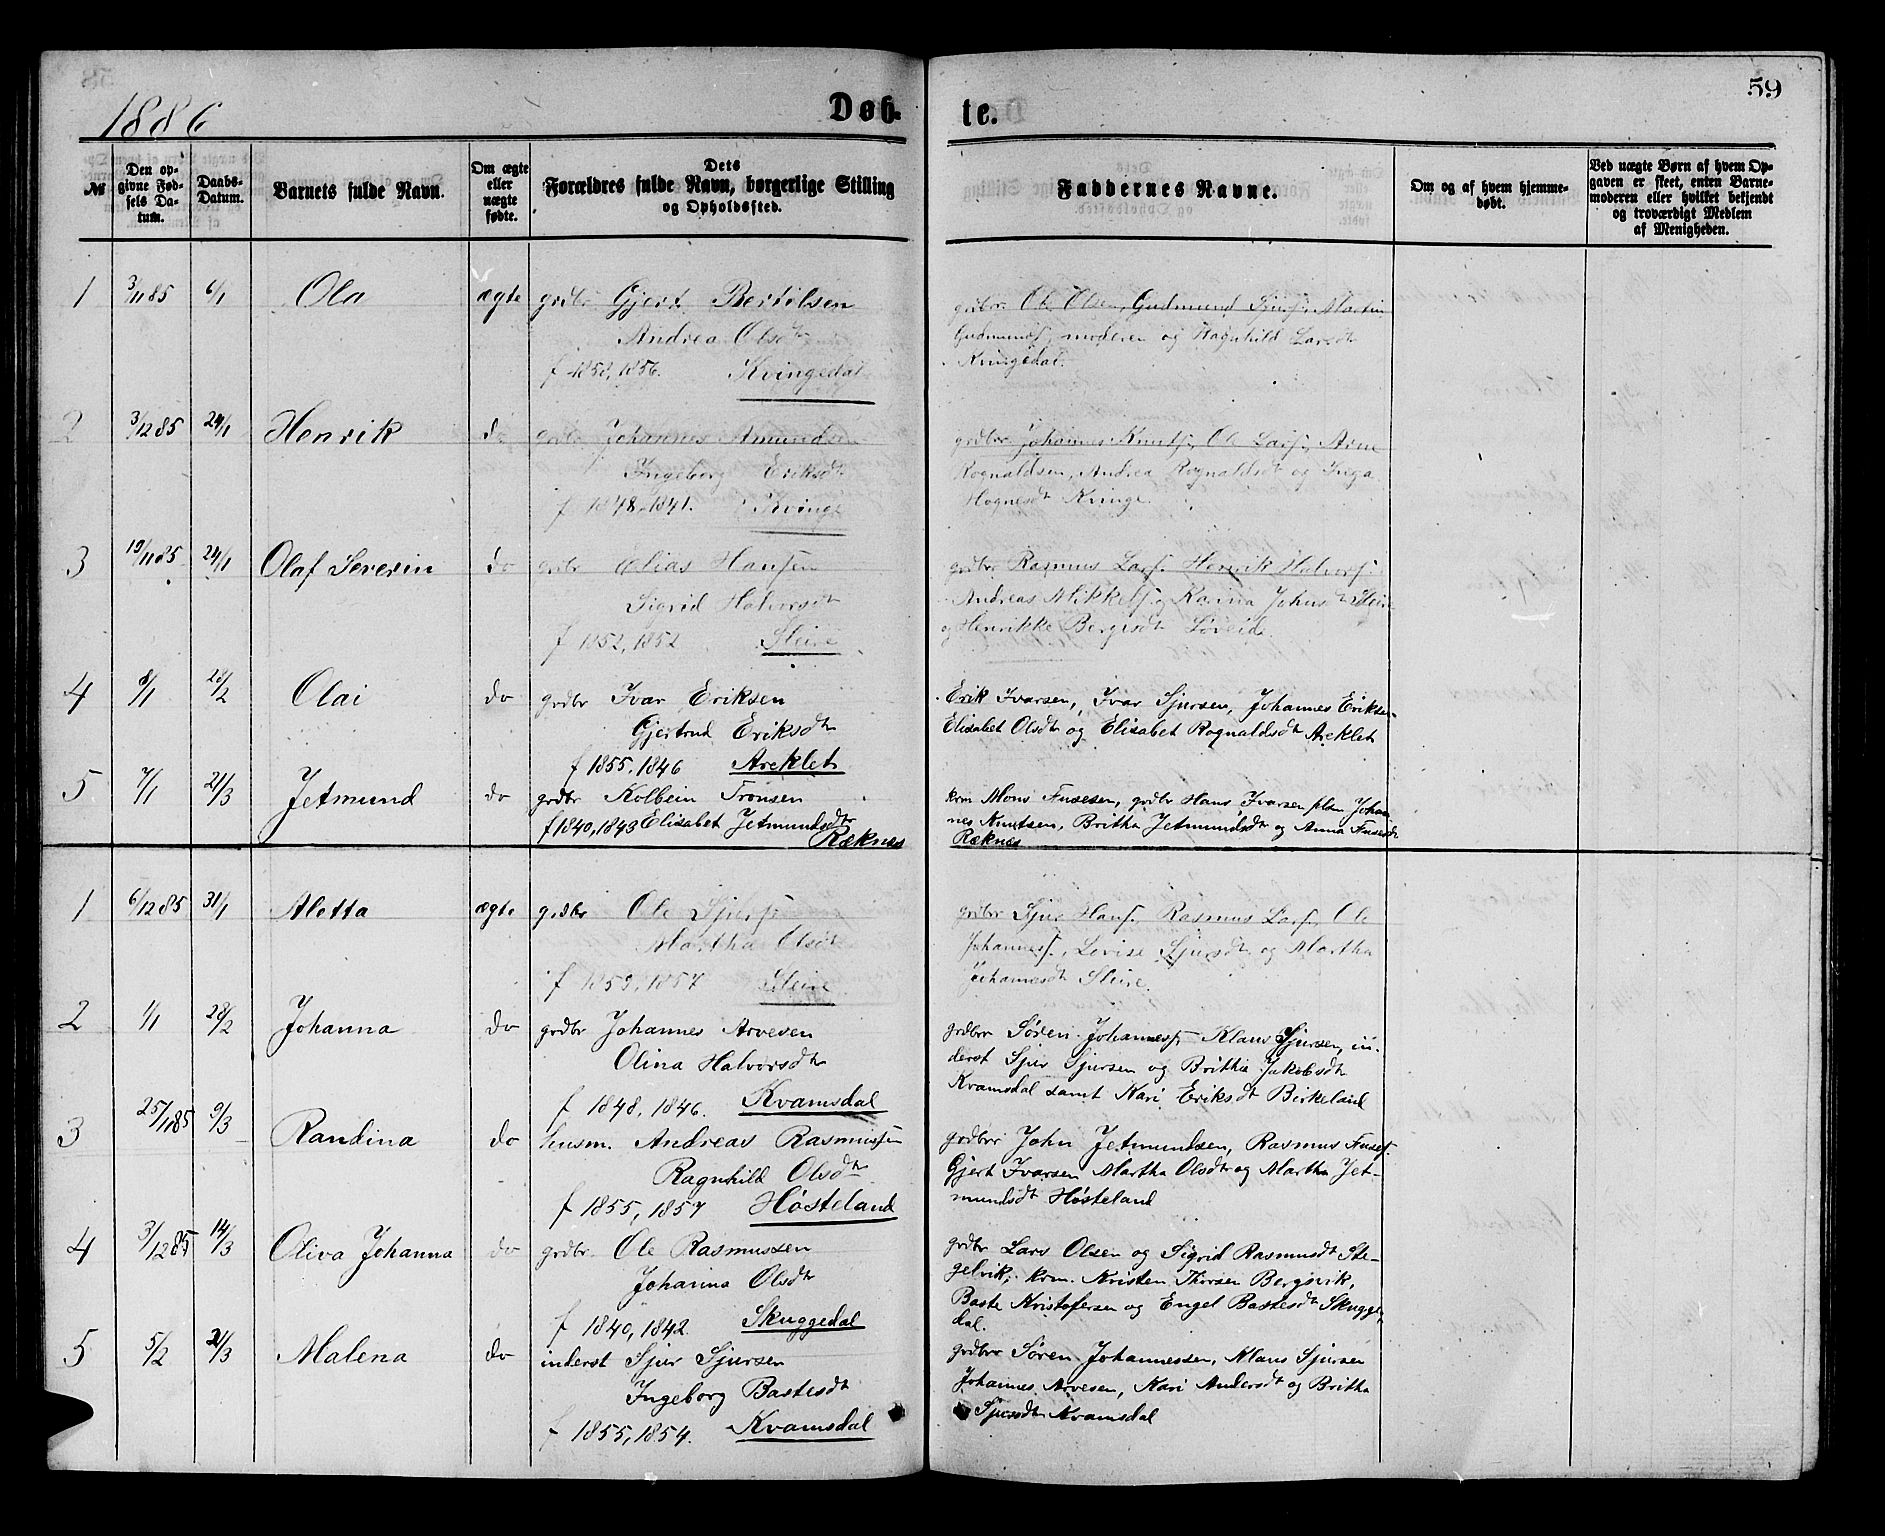 1886
Døb-
te.
59
№
Den op-
givne Fød-
sels Da-
tum.
Daabs-
Datum.
Barnets fulde Navn.
Om ægte
eller
uægte
fødte.
Dets
Forældres fulde Navn, borgerlige Stilling
og Opholdssted.
Faddernes Navne.
Om og af hvem hjemme-
døbt.
Ved uægte Børn af hvem Op-
gaven er skeet, enten Barne-
moderen eller hvilket bekjendt
og troværdigt Medlem
af Menigheden.
1 3/11 85 6/1 Ola ægte grdbr Gjert Bertilsen
Andrea Olsdt
f 1858, 1856. Kvingedal
grdbr Ole Olsen, Gudmund Sjurs, Martin
Gudmunds, moderen og Ragnhild Larsdt
Kvingedal.
2 3/12 85 24/1 Henrik do grdbr Johannes Amundsen
Ingeborg Eriksdt
f 1848, 1841. Kvinge
grdbr Johannes Knuts, Ole Lars, Arne
Rognaldsen, Andrea Rognaldsdt og Inga
Hognesdt Kvinge.
3 19/11 85 24/1 Olaf Severin do grdbr Elias Hansen
Sigrid Halvorsdt
f 1852, 1852 Sleire
grdbr Rasmus Lars. Henrik Halvors.
Andreas Mikkels og Karina Johnsdt Sleire
og Henrikke Bergesdt Søreide.
4 8/1 28/2 Olai do grdbr Ivar Eriksen
Gjertrud Eriksdt
f 1855, 1846 Areklet
Erik Ivarsen, Ivar Sjursen, Johannes Eriksen
Elisabet Olsdt og Elisabet Rognaldsdt Areklet
5 7/1 21/3 Jetmund do grdbr Kolbein Tronsen
f 1840, 1843 Elisabet Jetmundsdt
Ræknes
krm Mons Fusesen, grdbr Hans Ivarsen plsm Johan-
nes Knutsen, Britha Jetmundsdt og Anna Fusesdt
Ræknes
1 6/12 85 31/1 Aletta ægte grdbr Ole Sjurs
Martha Olsdt
f 1859, 1857 Sleire
grdbr Sjur Hans, Rasmus Lars, Ole
Johannes, Lovise Sjursdt og Martha
Johannesdt Sleire.
2 1/1 28/2 Johanna do grdbr Johannes Arvesen
Olina Halvorsdt
f 1848, 1846. Kvamsdal
grdbrr Søren Johanness Klaus Sjursen, in-
derst Sjur Sjursen og Britha Jakobsdt
Kvamsdal samt Kari Eriksdt Birkeland
3 25/11 85 9/3 Randina do husm. Andreas Rasmussen
Ragnhild Olsdt
f 1855, 1857 Høsteland
grdbrr John Jetmundsen, Rasmus Fuses.
Gjert Ivarsen Martha Olsdt og Martha Jet-
mundsdt Høsteland
4 3/12 85 14/3 Oliva Johanna do grdbr Ole Rasmussen
Johanna Olsdt
f 1840, 1842. Skuggedal
grdbr Lars Olsen og Sigrid Rasmusdt Ste-
gelvik, krm. Kristen Thorsen Bergsvik,
Baste Kristofersen og Engel Bastesdt Skugge-
dal.
5 5/2 21/3 Malena do inderst Sjur Sjursen
Ingeborg Bastesdt
f 1855, 1854. Kvamsdal
grdbrr Søren Johannessen, Klaus Sjursen
Johannes Arvesen, Kari Andersdt og Britha
Sjursdt Kvamsdal